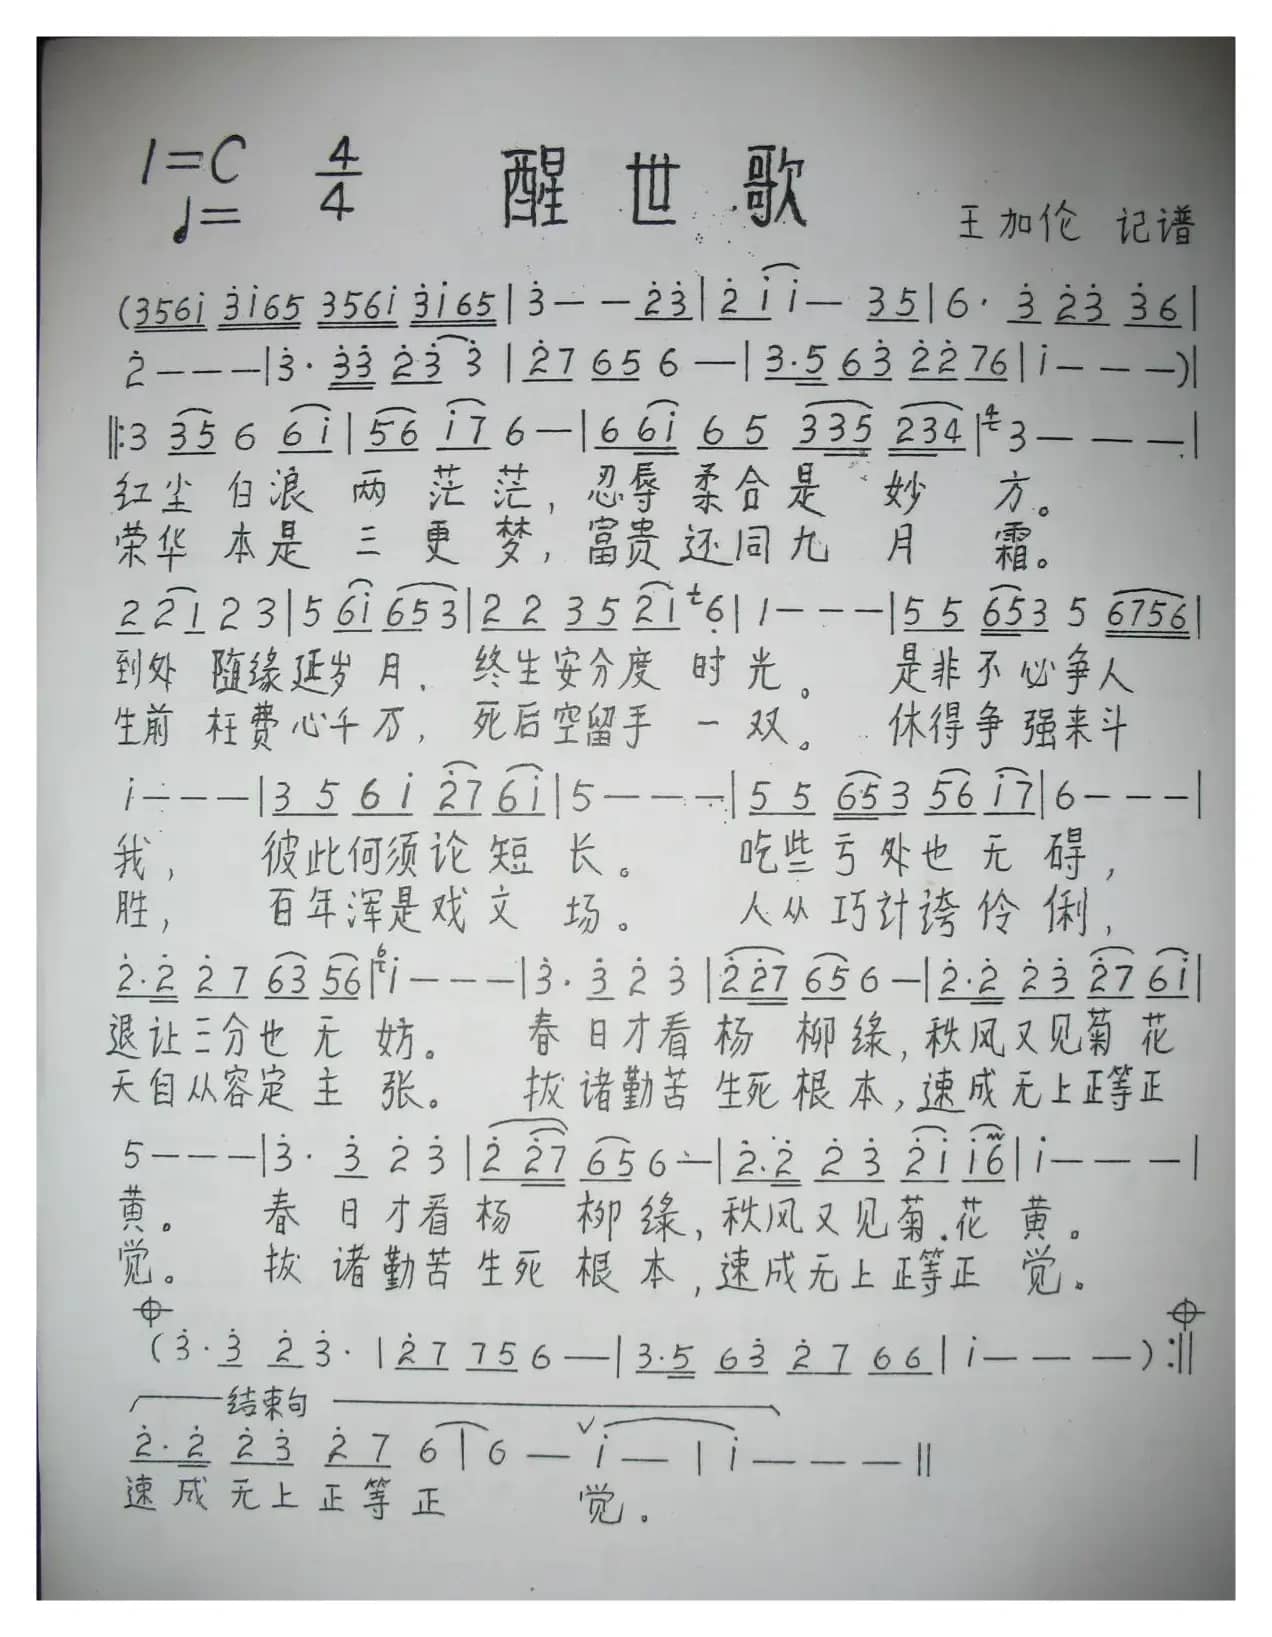 1=C 4/4 醒世歌
♩=
王加伦 记谱
(356i̇ 3̇i̇65 356i̇ 3̇i̇65|3̇--2̇3̇|2̇i̇ i̇- 35|6· 3̇ 2̇3̇ 3̇6|
2̇---|3̇· 3̇3̇ 2̇3̇ 3̇|2̇7 65 6-|3·5 63̇ 2̇2̇76|i̇---)|
‖:3 35 6 6i̇|56 i̇7 6-|6 6i̇ 6 5 335 234|⁴3---|
红尘 白浪 两 茫茫，忍辱 柔合是 妙 方。
荣华 本是 三 更 梦，富贵 还同九 月 霜。
2 21 2 3|5 6i̇ 653|2 2 3 5 2i 6̣|1---|5 5 653 5 6756|
到处 随缘延岁 月， 终生安分度 时 光。 是非不必争人
生前 枉费心千万， 死后空留手 一 双。 休得争强来斗
i̇---|3 5 6 i̇ 2̇7 6i̇|5---|5 5 653 56 i̇7|6---|
我， 彼此何须论 短 长。 吃些亏处也 无 碍，
胜， 百年浑是戏 文 场。 人从巧计誇 伶 俐，
2̇·2̇ 2̇7 63̇ 56|⁶i̇---|3̇· 3̇ 2̇ 3̇|2̇ 2̇7 65 6-|2̇·2̇ 2̇3̇ 2̇7 6i̇|
退让三分也 无 妨。 春 日才看 杨 柳 緑，秩风又见菊 花
天自从容定 主 张。 拔诸勤苦 生死根 本，速成无上正等正
5---|3̇· 3̇ 2̇ 3̇|2̇ 2̇7 65 6-|2̇·2̇ 2̇ 3̇ 2̇i̇ i̇6|i̇---|
黄。 春 日 才看 杨 柳 緑，秩风又见菊.花 黄。
觉。 拔 诸勤苦 生死 根 本，速成无上正等正 觉。
(3̇·3̇ 2̇ 3̇·|2̇7 756-|3·5 63̇ 2̇7 66|i̇---):‖
结束句
2̇·2̇ 2̇3̇ 2̇7 6|6- ∨i̇-|i̇---‖
速成无上 正等正 觉。